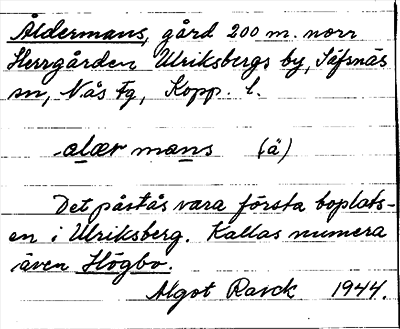 Åldermans, gård 200 m. norr
Herrgården Ulriksbergs by, Säfsnäs
sn, Nås Fg, Kopp. l.
alær mans (å)
Det påstås vara första boplats-
en i Ulriksberg. Kallas numera
även Högbo.
Algot Rarck 1944.